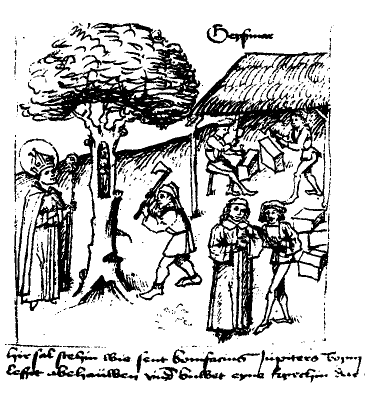 Geysmar
hie sal stehin wie sent bonifacius Jupiters boym
lesset abehauwen und buwet eyne kirchin